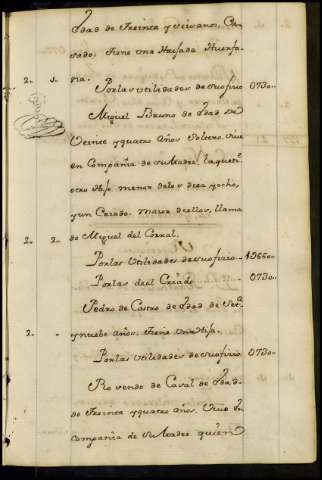 Edad de treinta y seis anos, Ca-
sado, tiene una Hijada Huerfa-
2.. 1. na.
Por las utilidades de su oficio 0730..
Miguel Bruno de Edad de
Veinte y quatro años Soltero, vive
en Compañia de su Madre, la que tiene
otro Hijo menor de los diez y ocho,
y un Criado maior de ellos, llama
2.. 2.. do Miguel del Corral.
Por las Utilidades de su oficio..
Por las del Criado 0730..
Pedro de Castro de Edad de
2.. y nuebe años, tiene un Hijo.
Por las Utilidades de su oficio 0730..
de Edad
de treinta y quatro años, Vive en
compañia de su Madre quien